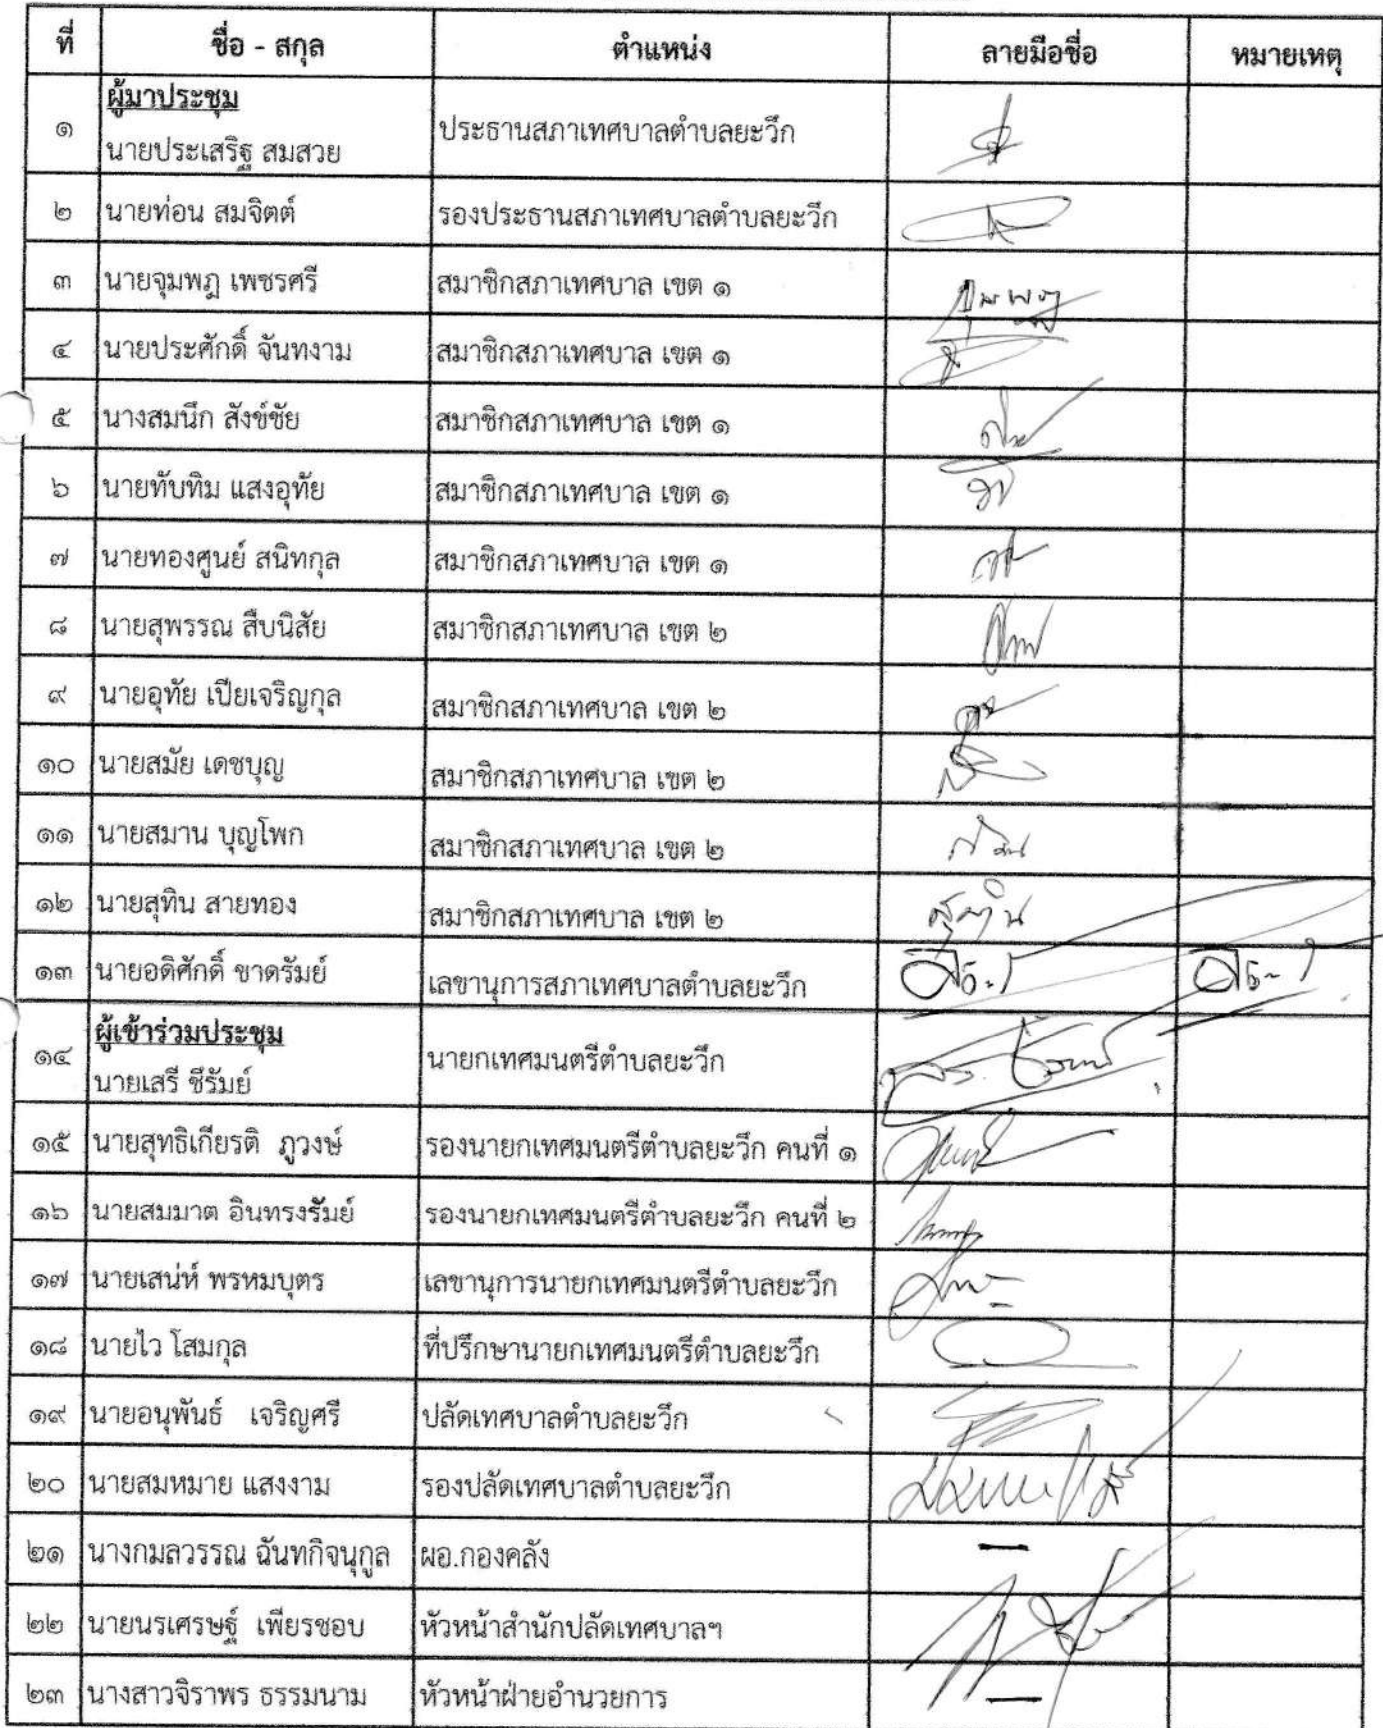 ที่ ชื่อ - สกุล ตำแหน่ง ลายมือชื่อ หมายเหตุ
ผู้มาประชุม
๑ นายประเสริฐ สมสวย ประธานสภาเทศบาลตำบลยะวึก
๒ นายท่อน สมจิตต์ รองประธานสภาเทศบาลตำบลยะวึก
๓ นายจุมพฎ เพชรศรี สมาชิกสภาเทศบาล เขต ๑
๔ นายประศักดิ์ จันทงาม สมาชิกสภาเทศบาล เขต ๑
๕ นางสมนึก สังข์ชัย สมาชิกสภาเทศบาล เขต ๑
๖ นายทับทิม แสงอุทัย สมาชิกสภาเทศบาล เขต ๑
๗ นายทองศูนย์ สนิทกุล สมาชิกสภาเทศบาล เขต ๑
๘ นายสุพรรณ สืบนิสัย สมาชิกสภาเทศบาล เขต ๒
๙ นายอุทัย เปียเจริญกุล สมาชิกสภาเทศบาล เขต ๒
๑๐ นายสมัย เดชบุญ สมาชิกสภาเทศบาล เขต ๒
๑๑ นายสมาน บุญโพก สมาชิกสภาเทศบาล เขต ๒
๑๒ นายสุทิน สายทอง สมาชิกสภาเทศบาล เขต ๒ สุทิน
๑๓ นายอดิศักดิ์ ชาดรัมย์ เลขานุการสภาเทศบาลตำบลยะวึก
ผู้เข้าร่วมประชุม
๑๔ นายเสรี ชีรัมย์ นายกเทศมนตรีตำบลยะวึก
๑๕ นายสุทธิเกียรติ ภูวงษ์ รองนายกเทศมนตรีตำบลยะวึก คนที่ ๑
๑๖ นายสมมาต อินทรงรัมย์ รองนายกเทศมนตรีตำบลยะวึก คนที่ ๒
๑๗ นายเสน่ห์ พรหมบุตร เลขานุการนายกเทศมนตรีตำบลยะวึก
๑๘ นายไว โสมกุล ที่ปรึกษานายกเทศมนตรีตำบลยะวึก
๑๙ นายอนุพันธ์ เจริญศรี ปลัดเทศบาลตำบลยะวึก
๒๐ นายสมหมาย แสงงาม รองปลัดเทศบาลตำบลยะวึก
๒๑ นางกมลวรรณ ฉันทกิจนุกูล ผอ.กองคลัง –
๒๒ นายนรเศรษฐ์ เพียรชอบ หัวหน้าสำนักปลัดเทศบาลฯ
๒๓ นางสาวจิราพร ธรรมนาม หัวหน้าฝ่ายอำนวยการ –